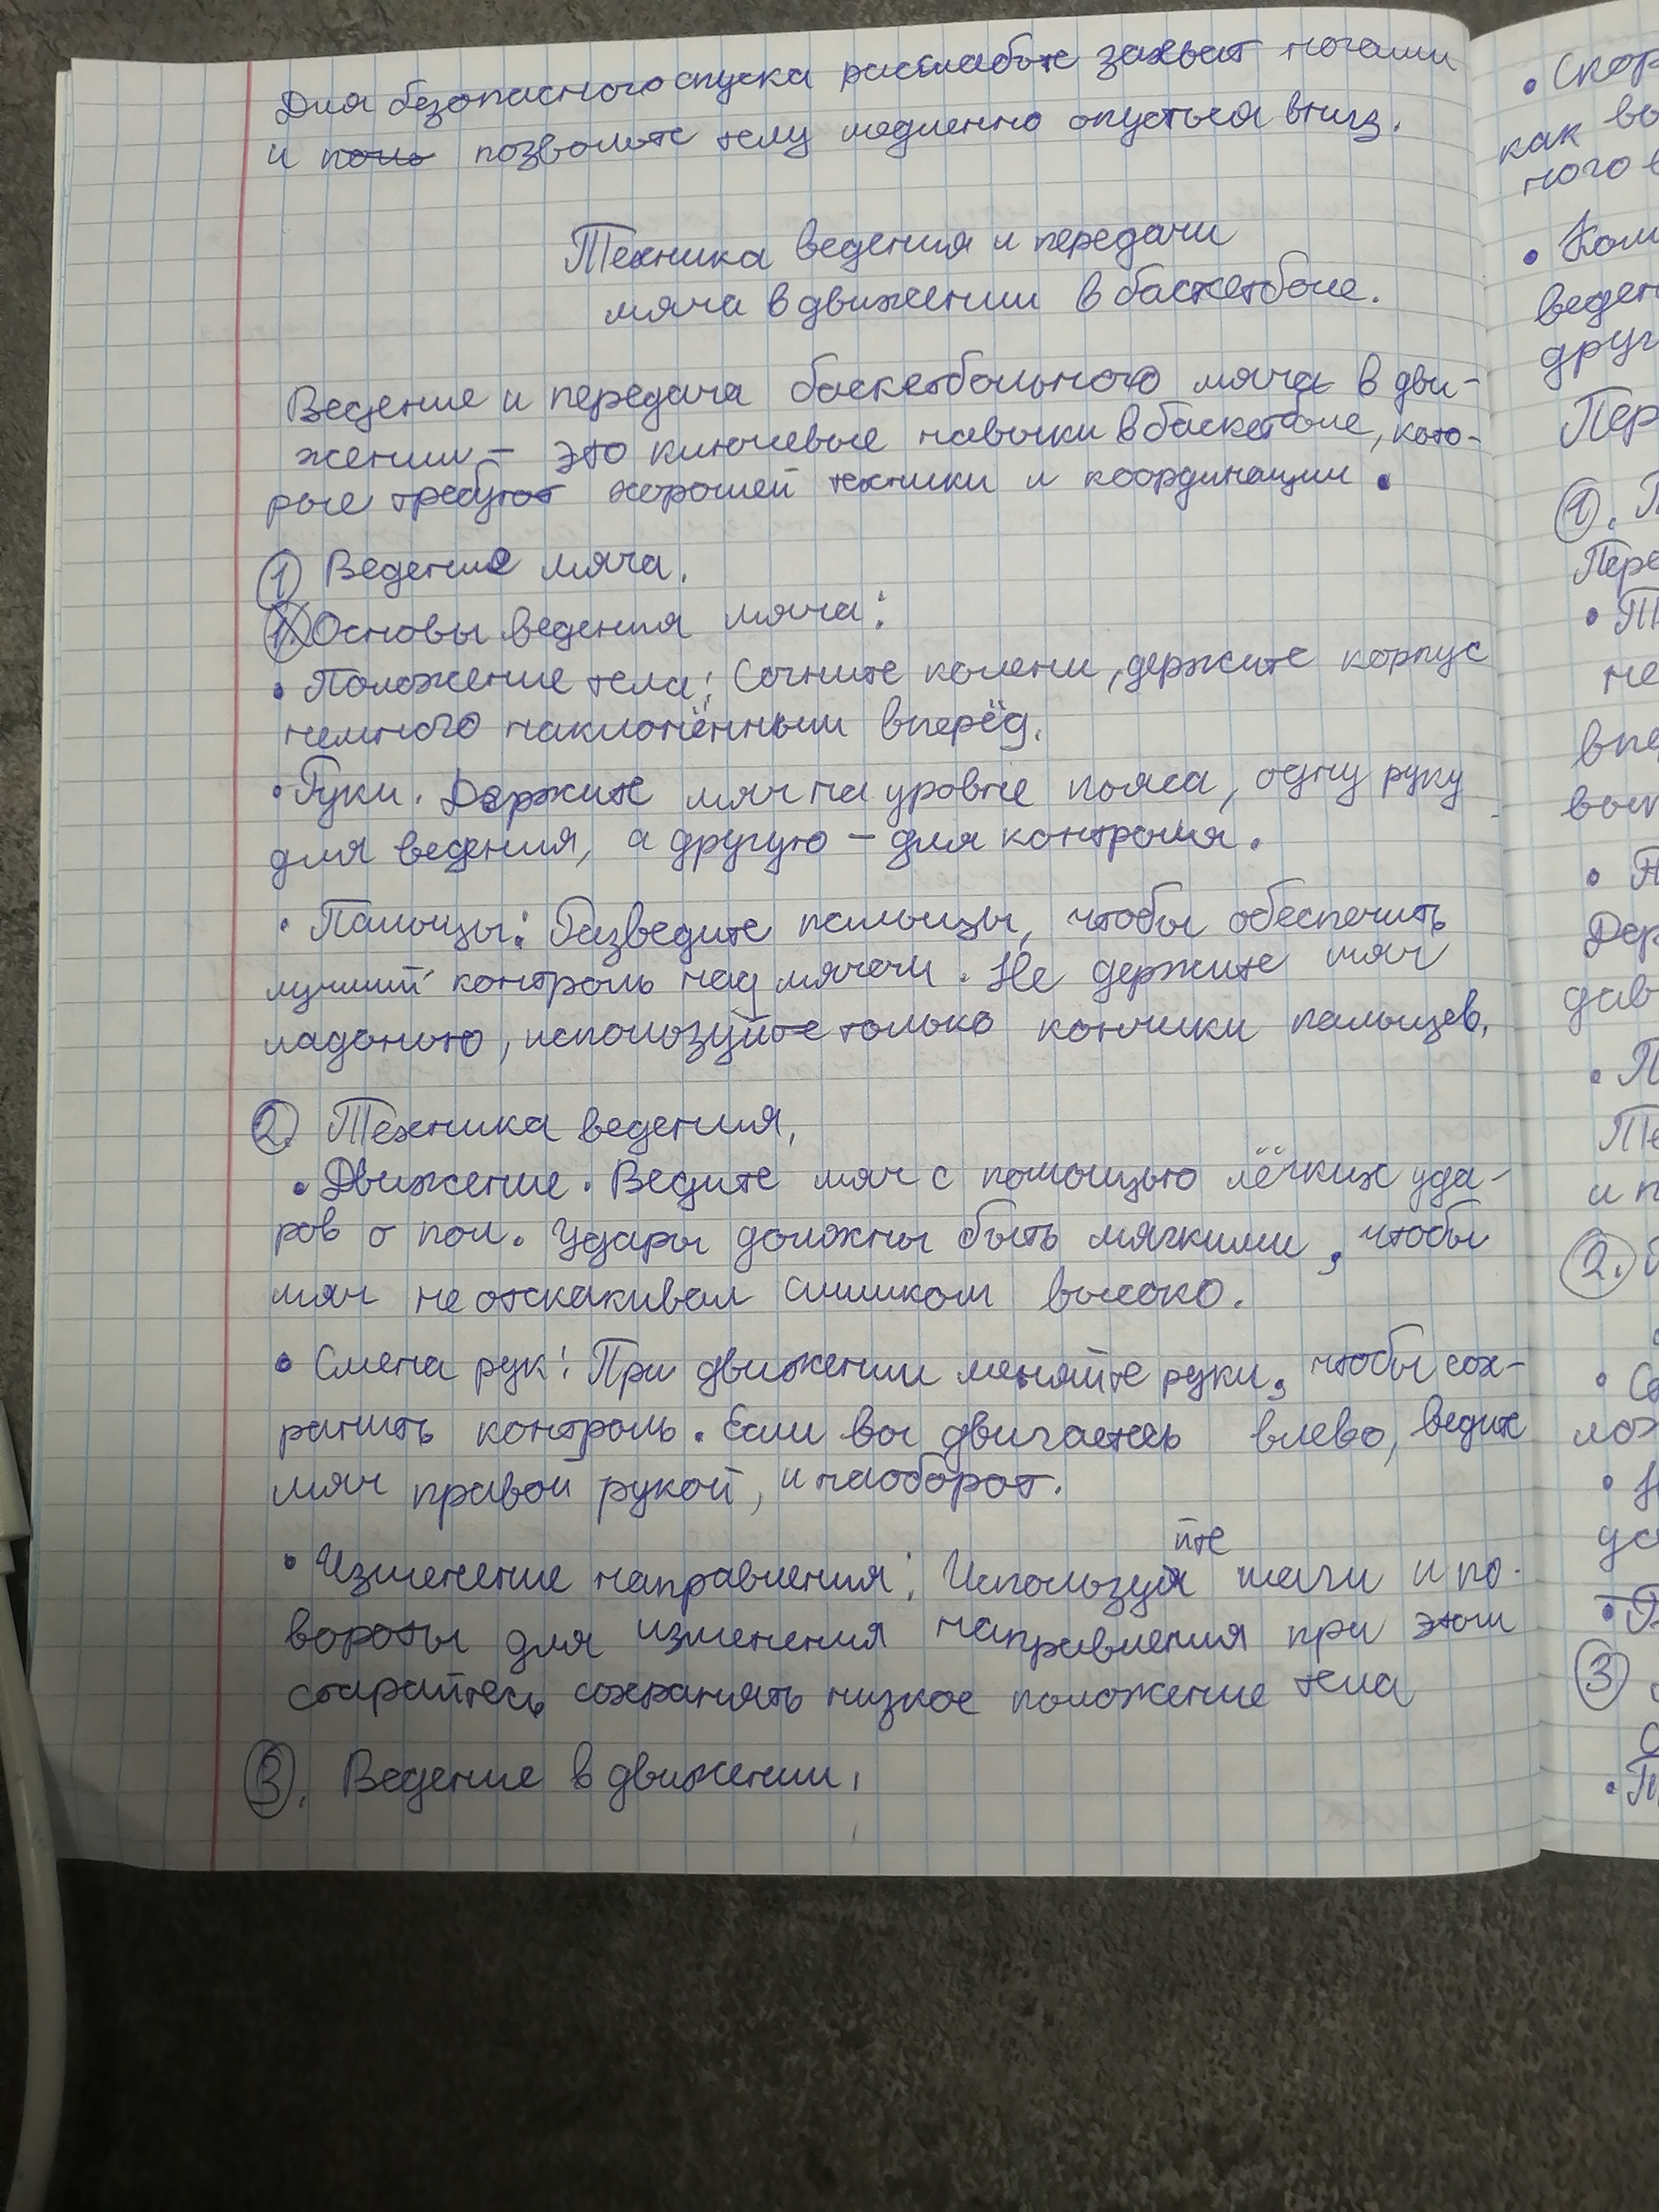 Для безопасного спуска расслабьте захват ногами
и позвольте телу медленно опуститься вниз.
Техника ведения и передачи
мяча в движении в баскетболе.
Ведение и передача баскетбольного мяча в дви-
жении - это ключевые навыки в баскетболе, кото-
рые требуют хорошей техники и координации.
1 Ведение мяча.
Основы ведения мяча:
• Положение тела: Согните колени, держите корпус
немного наклонённым вперёд.
• Руки. Держите мяч на уровне пояса, одну руку
для ведения, а другую - для контроля.
• Пальцы: Разведите пальцы, чтобы обеспечить
лучший контроль над мячом. Не держите мяч
ладонью, используйте только кончики пальцев.
2. Техника ведения.
• Движение. Ведите мяч с помощью лёгких уда-
ров о пол. Удары должны быть мягкими, чтобы
мяч не отскакивал слишком высоко.
• Смена рук: При движении меняйте руки, чтобы сох-
ранить контроль. Если вы двигаетесь влево, ведите
мяч правой рукой, и наоборот.
• Изменение направления: Используйте шаги и по-
вороты для изменения направления при этом
старайтесь сохранять низкое положение тела
3. Ведение в движении.
• Скор
как
ного в
•
веден
друг
Пер
1. П
Пере
•
не
впе
•
Дер
дав
• П
Те
и п
2.
•
•
•
3
•